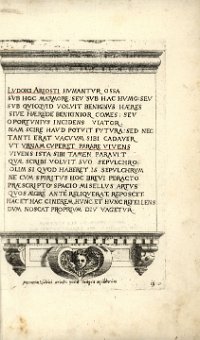 LVDOICI ARIOSTI HVMANTVR OSSA
SVB HOC MARMORE SEV SVB HAC HVMO SEV
SVB QVICQVID VOLVIT BENIGNVS HÆRES
SIVE HÆREDE BENIGNIOR COMES SEV
OPORTVNIVS INCIDENS VIATOR,
NAM SCIRE HAVD POTVIT FVTVRA: SED NEC
TANTI ERAT VACVVM SIBI CADAVER
VT VRNAM CVPERET PARARE VIVENS
VIVENS ISTA SIBI TAMEN PARAVIT
QVÆ SCRIBI VOLVIT SVO SEPVLCHRO.
OLIM SI QVOD HABERET IS SEPVLCHRVM
NE CVM SPIRITVS HOC BREVI PERACTO
PRÆSCRIPTO SPACIO MISELLVS ARTVS
QVOS ÆGRE ANTE RELIQVERAT REPOSCET
HAC ET HAC CINEREM, HVNC ET HVNC REVELLENS
DVM NOSCAT PROPRIVM DIV VAGETVR